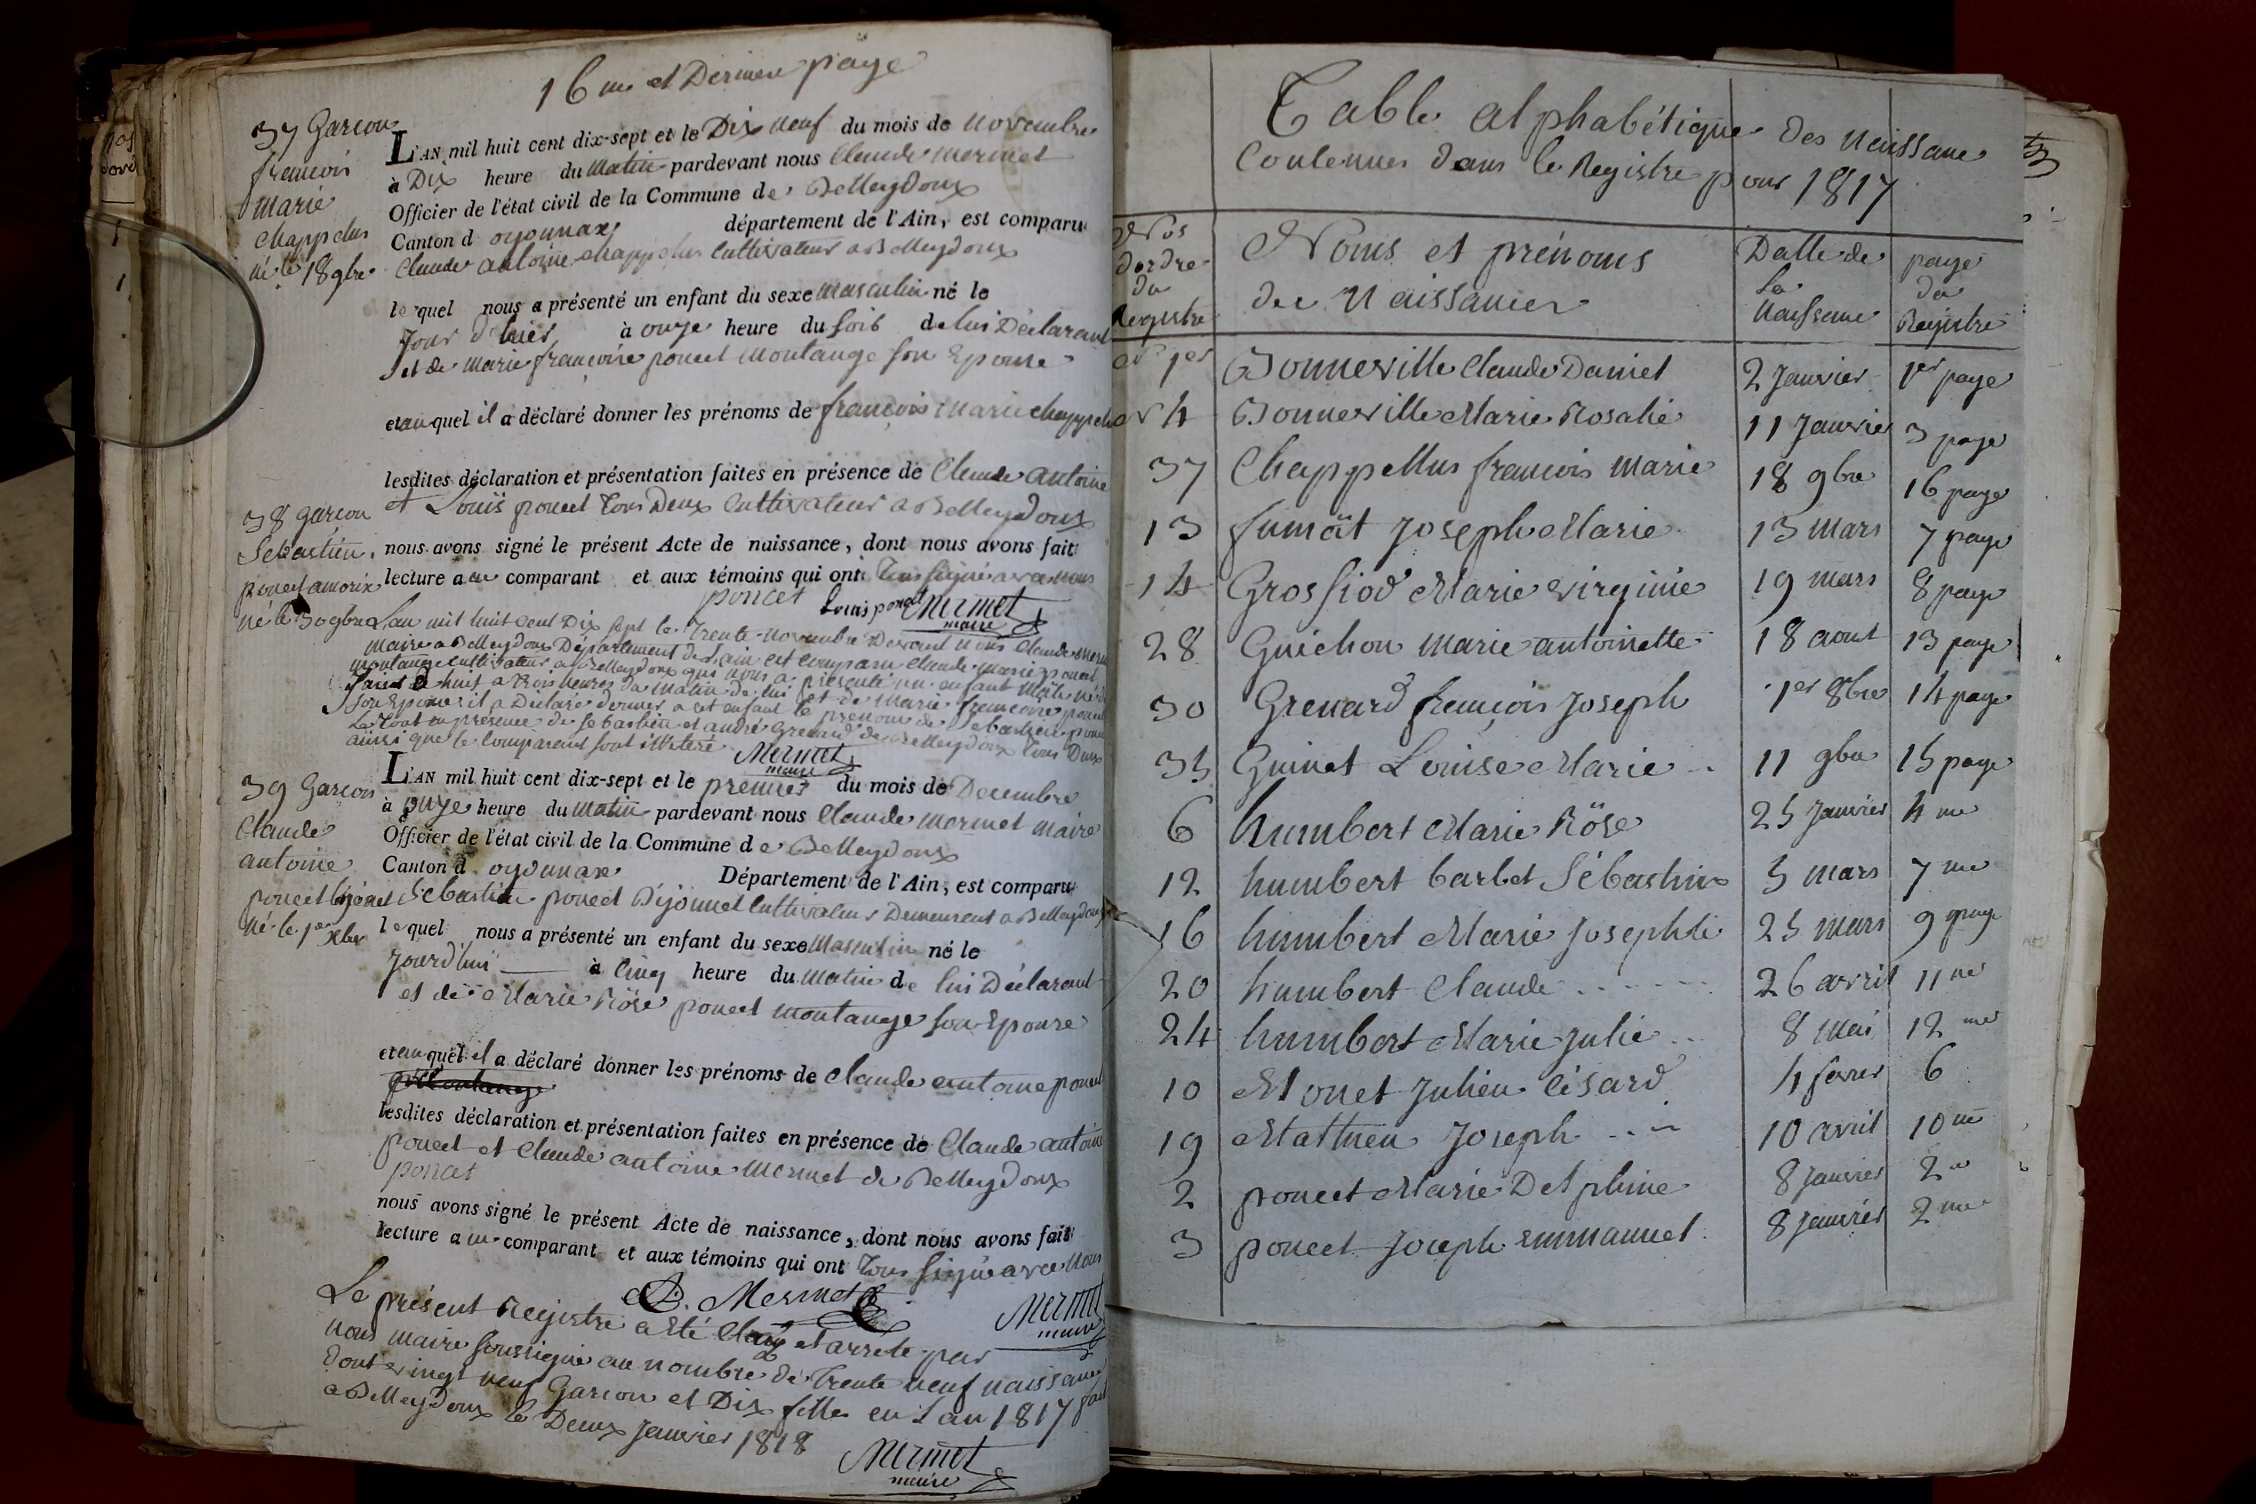 16me et Derniere page
37 Garcon
francois
marie
chappelus
né le 18 9bre
L'AN mil huit cent dix-sept et le Dix neuf du mois de novembre
à Dix heure du Matin pardevant nous Claude mermet
Officier de l'état civil de la Commune de Belleydoux
Canton d oyonnax département de l'Ain, est comparu
Claude antoine chappelus Cultivateur a Belleydoux
lequel nous a présenté un enfant du sexe Masculin né le
Jour d'hier à onze heure du soir de lui Déclarant
et de marie françoise poncet montange son Epouse
et au quel il a déclaré donner les prénoms de françois marie chappelu
lesdites déclaration et présentation faites en présence de Claude antoine
et Louis poncet tous Deux Cultivateur a Belleydoux
nous avons signé le présent Acte de naissance, dont nous avons fait
lecture au comparant et aux témoins qui ont tous signé avec nous
poncet Louis poncet Mermet
maire
38 garcon
Sebastien
poncet
né le 30 9bre
L'an mil huit cent Dix sept le Trente novembre Devant nous Claude
maire a Belleydoux Département de L'ain est comparu Claude marie poncet
montange cultivateur a Belleydoux qui nous a présenté un enfant Mâle né
a trois heures du matin de lui et de Marie françoise
son Epouse il a Déclaré donner a cet enfant le prenom de Sebastien
Le tout en présence de Sebastien et andré Grenard de Belleydoux tous Deux
ainsi que le Comparant sont
Mermet
maire
39 Garcon
Claude
antoine
poncet
né le 1er Xbre
L'AN mil huit cent dix-sept et le premier du mois de Decembre
à onze heure du Matin pardevant nous Claude mermet maire
Officier de l'état civil de la Commune de Belleydoux
Canton d oyonnax Département de l'Ain, est comparu
Sebastien poncet Dijonnet Cultivateur Demeurant a Belleydoux
lequel nous a présenté un enfant du sexe Masculin né le
Jourd'hui à Cinq heure du Matin de lui Déclarant
et de Marie Rose poncet montange son Epouse
et au quel il a déclaré donner les prénoms de Claude antoine poncet
lesdites déclaration et présentation faites en présence de Claude antoine
poncet et Claude antoine Mermet de Belleydoux
poncet
nous avons signé le présent Acte de naissance, dont nous avons fait
lecture au comparant et aux témoins qui ont tous signé avec nous
Mermet Mermet
maire
Le présent Registre a été Clos et arrete par
nous maire soussigné au nombre de Trente neuf naissance
dont vingt neuf Garcon et Dix filles en L'an 1817
a Belleydoux le Deux Janvier 1818
Mermet
maire
Table alphabétique des naissance
Contenues dans le Registre pour 1817
Nos d'ordre du Registre Noms et prénoms des Naissances Datte de la Naissance page du Registre
No 1er Bonneville Claude Daniel 2 Janvier 1er page
No 4 Bonneville Marie Rosalie 11 Janvier 3 page
37 Chappellus francois Marie 18 9bre 16 page
13 fumät Joseph Marie 13 mars 7 page
14 Grossiod Marie virginie 19 mars 8 page
28 Guichon marie antoinette 18 aout 13 page
30 Grenard françois Joseph 1er 8bre 14 page
35 Guinet Louise Marie 11 9bre 15 page
6 humbert Marie Röse 25 Janvier 4me
12 humbert barbet Sébastien 5 mars 7me
16 humbert Marie Josephte 25 mars 9 page
20 humbert Claude 26 avril 11me
24 humbert Marie Julie 8 mai 12me
10 Monet Julien Césard 4 fevrier 6
19 Mathieu Joseph 10 avril 10me
2 poncet Marie Delphine 8 Janvier 2me
3 poncet Joseph Emmanuel 8 Janvier 2me